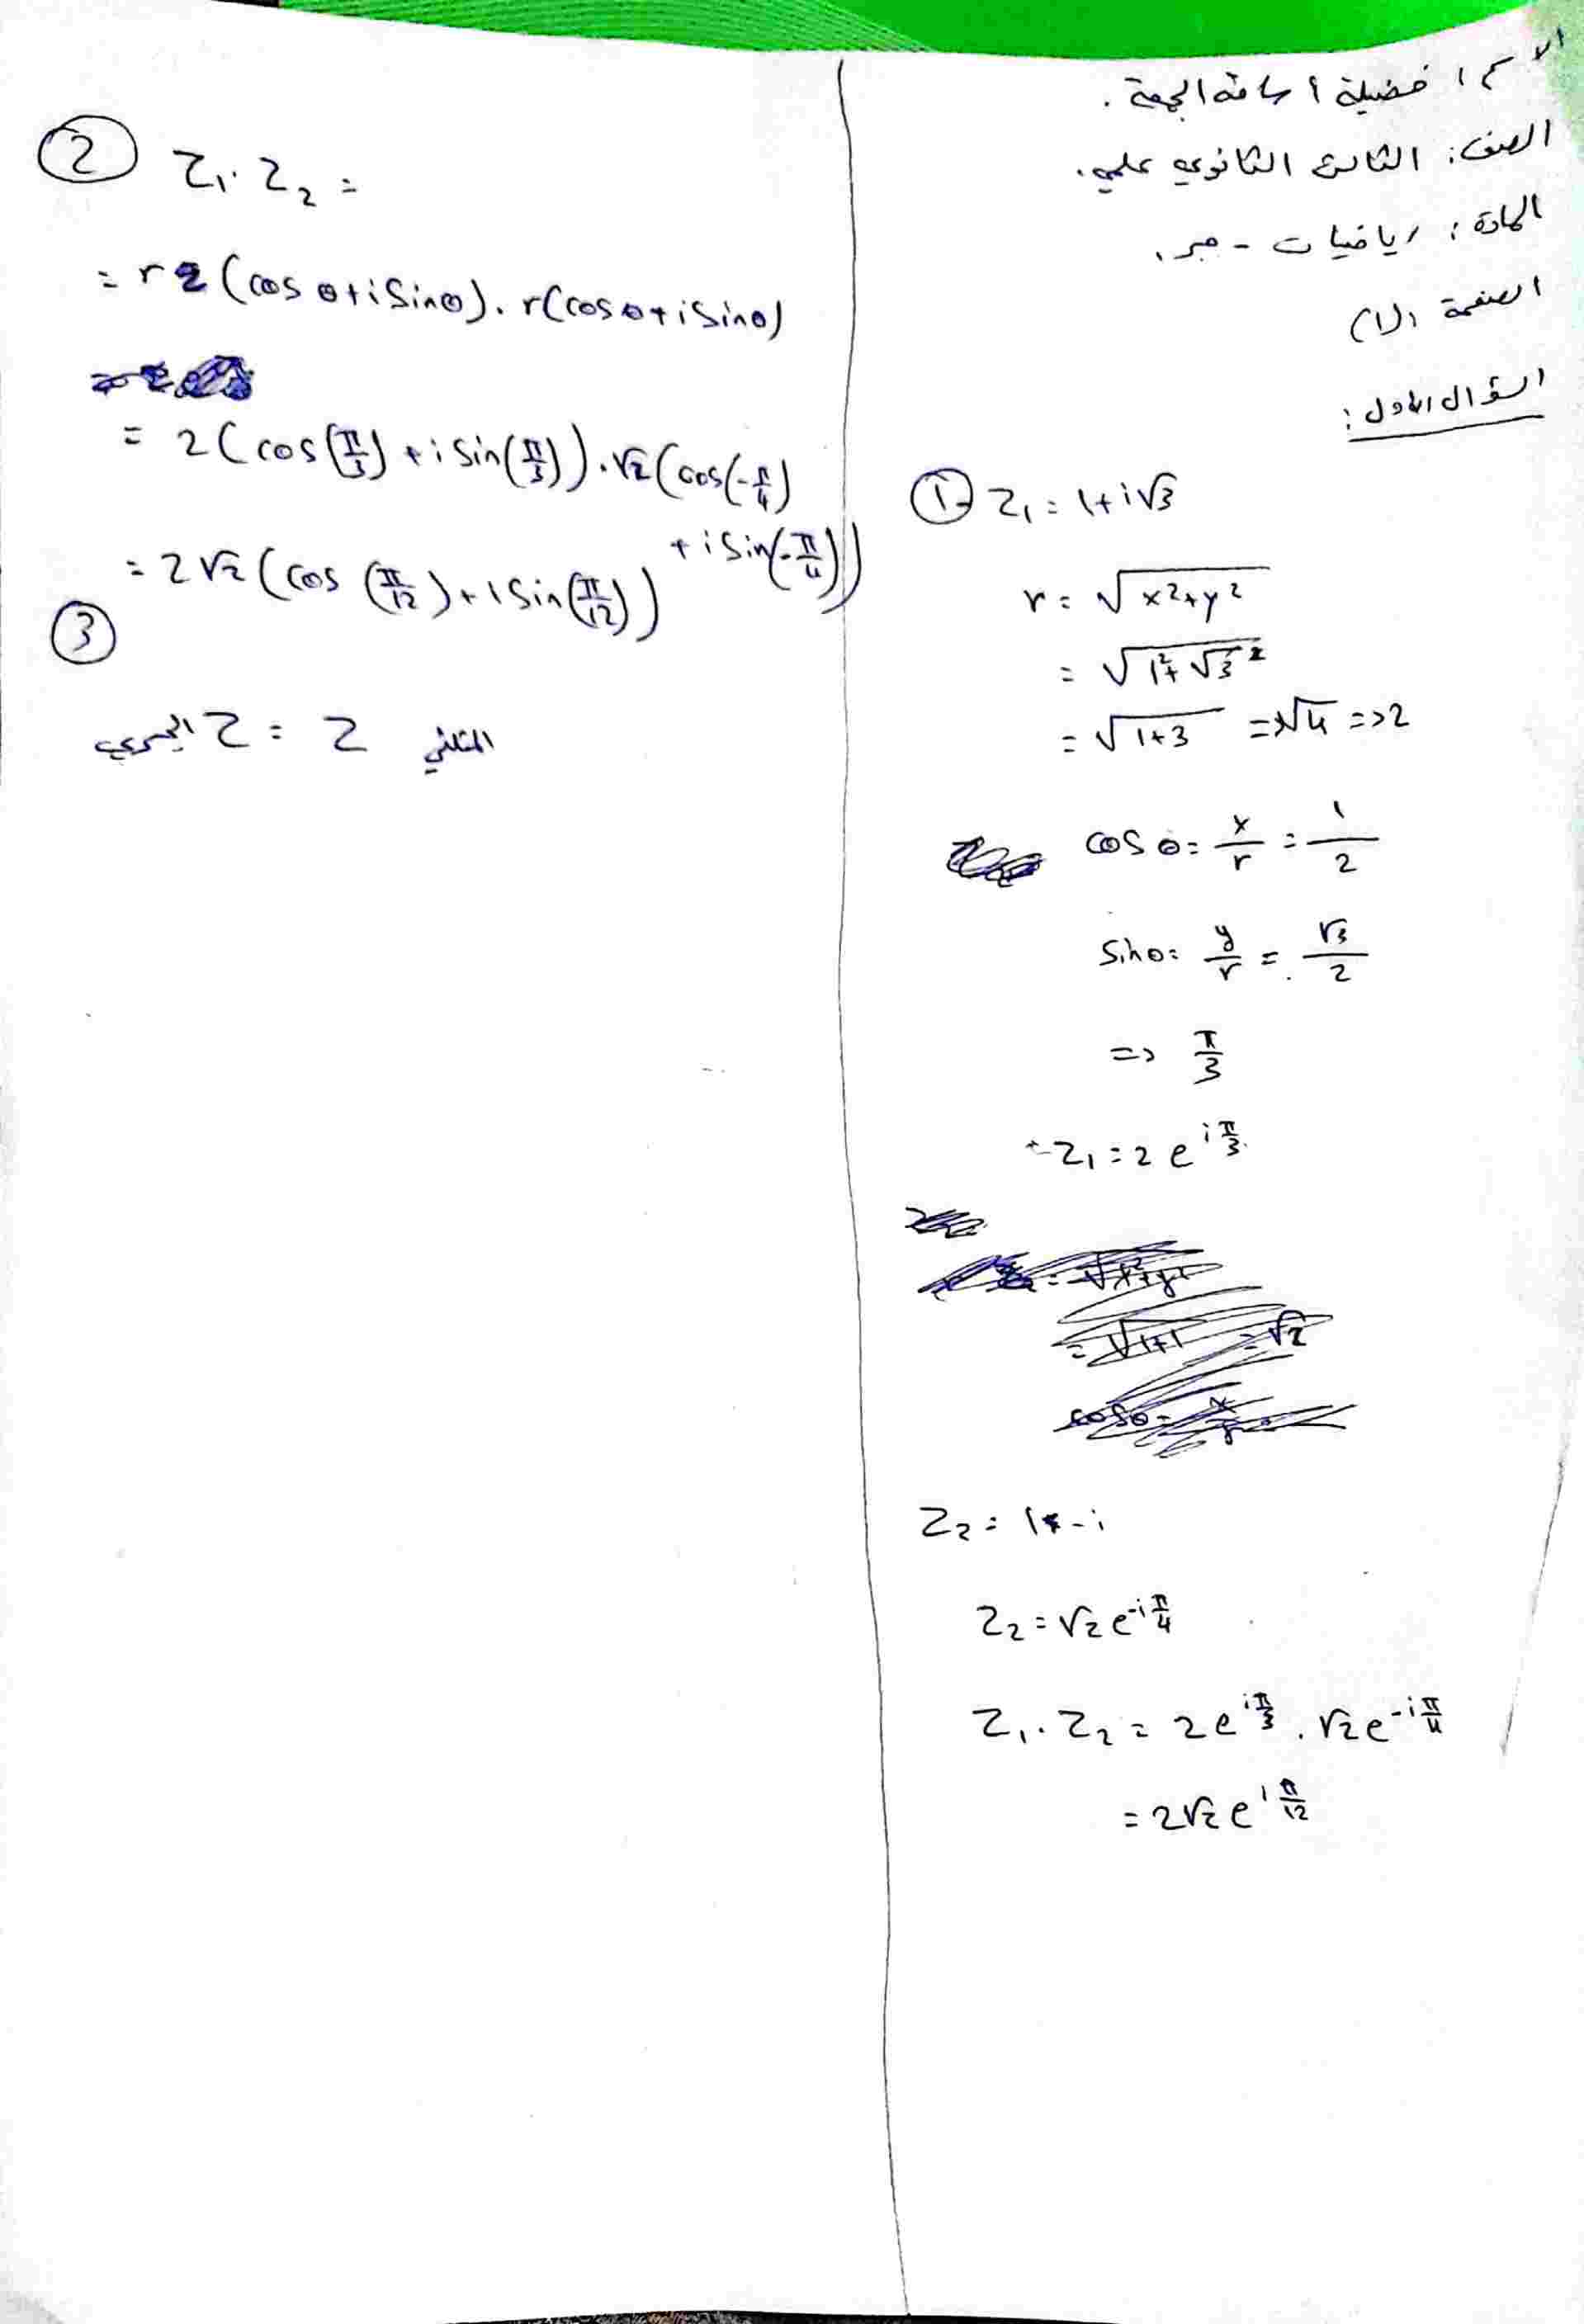 الاسم: فضيلة أسامة الجمعة.
الصف: الثالث الثانوي علمي.
المادة: رياضيات - جبر.
الصفحة (1)
السؤال الأول:
① Z₁ = 1+i√3
r = √(x²+y²)
= √(1²+√3²)
= √(1+3) => √4 => 2
cos θ = x/r = 1/2
sin θ = y/r = √3/2
=> π/3
Z₁ = 2 e^(i π/3)
Z₂ = 1 - i
Z₂ = √2 e^(-i π/4)
Z₁ . Z₂ = 2 e^(i π/3) . √2 e^(-i π/4)
= 2√2 e^(i π/12)
② Z₁ . Z₂ =
= r (cos θ + i sin θ) . r (cos θ + i sin θ)
= 2 (cos(π/3) + i sin(π/3)) . √2 (cos(-π/4)
+ i sin(-π/4))
= 2√2 (cos (π/12) + i sin(π/12))
③
المثلثي Z = Z الجبري